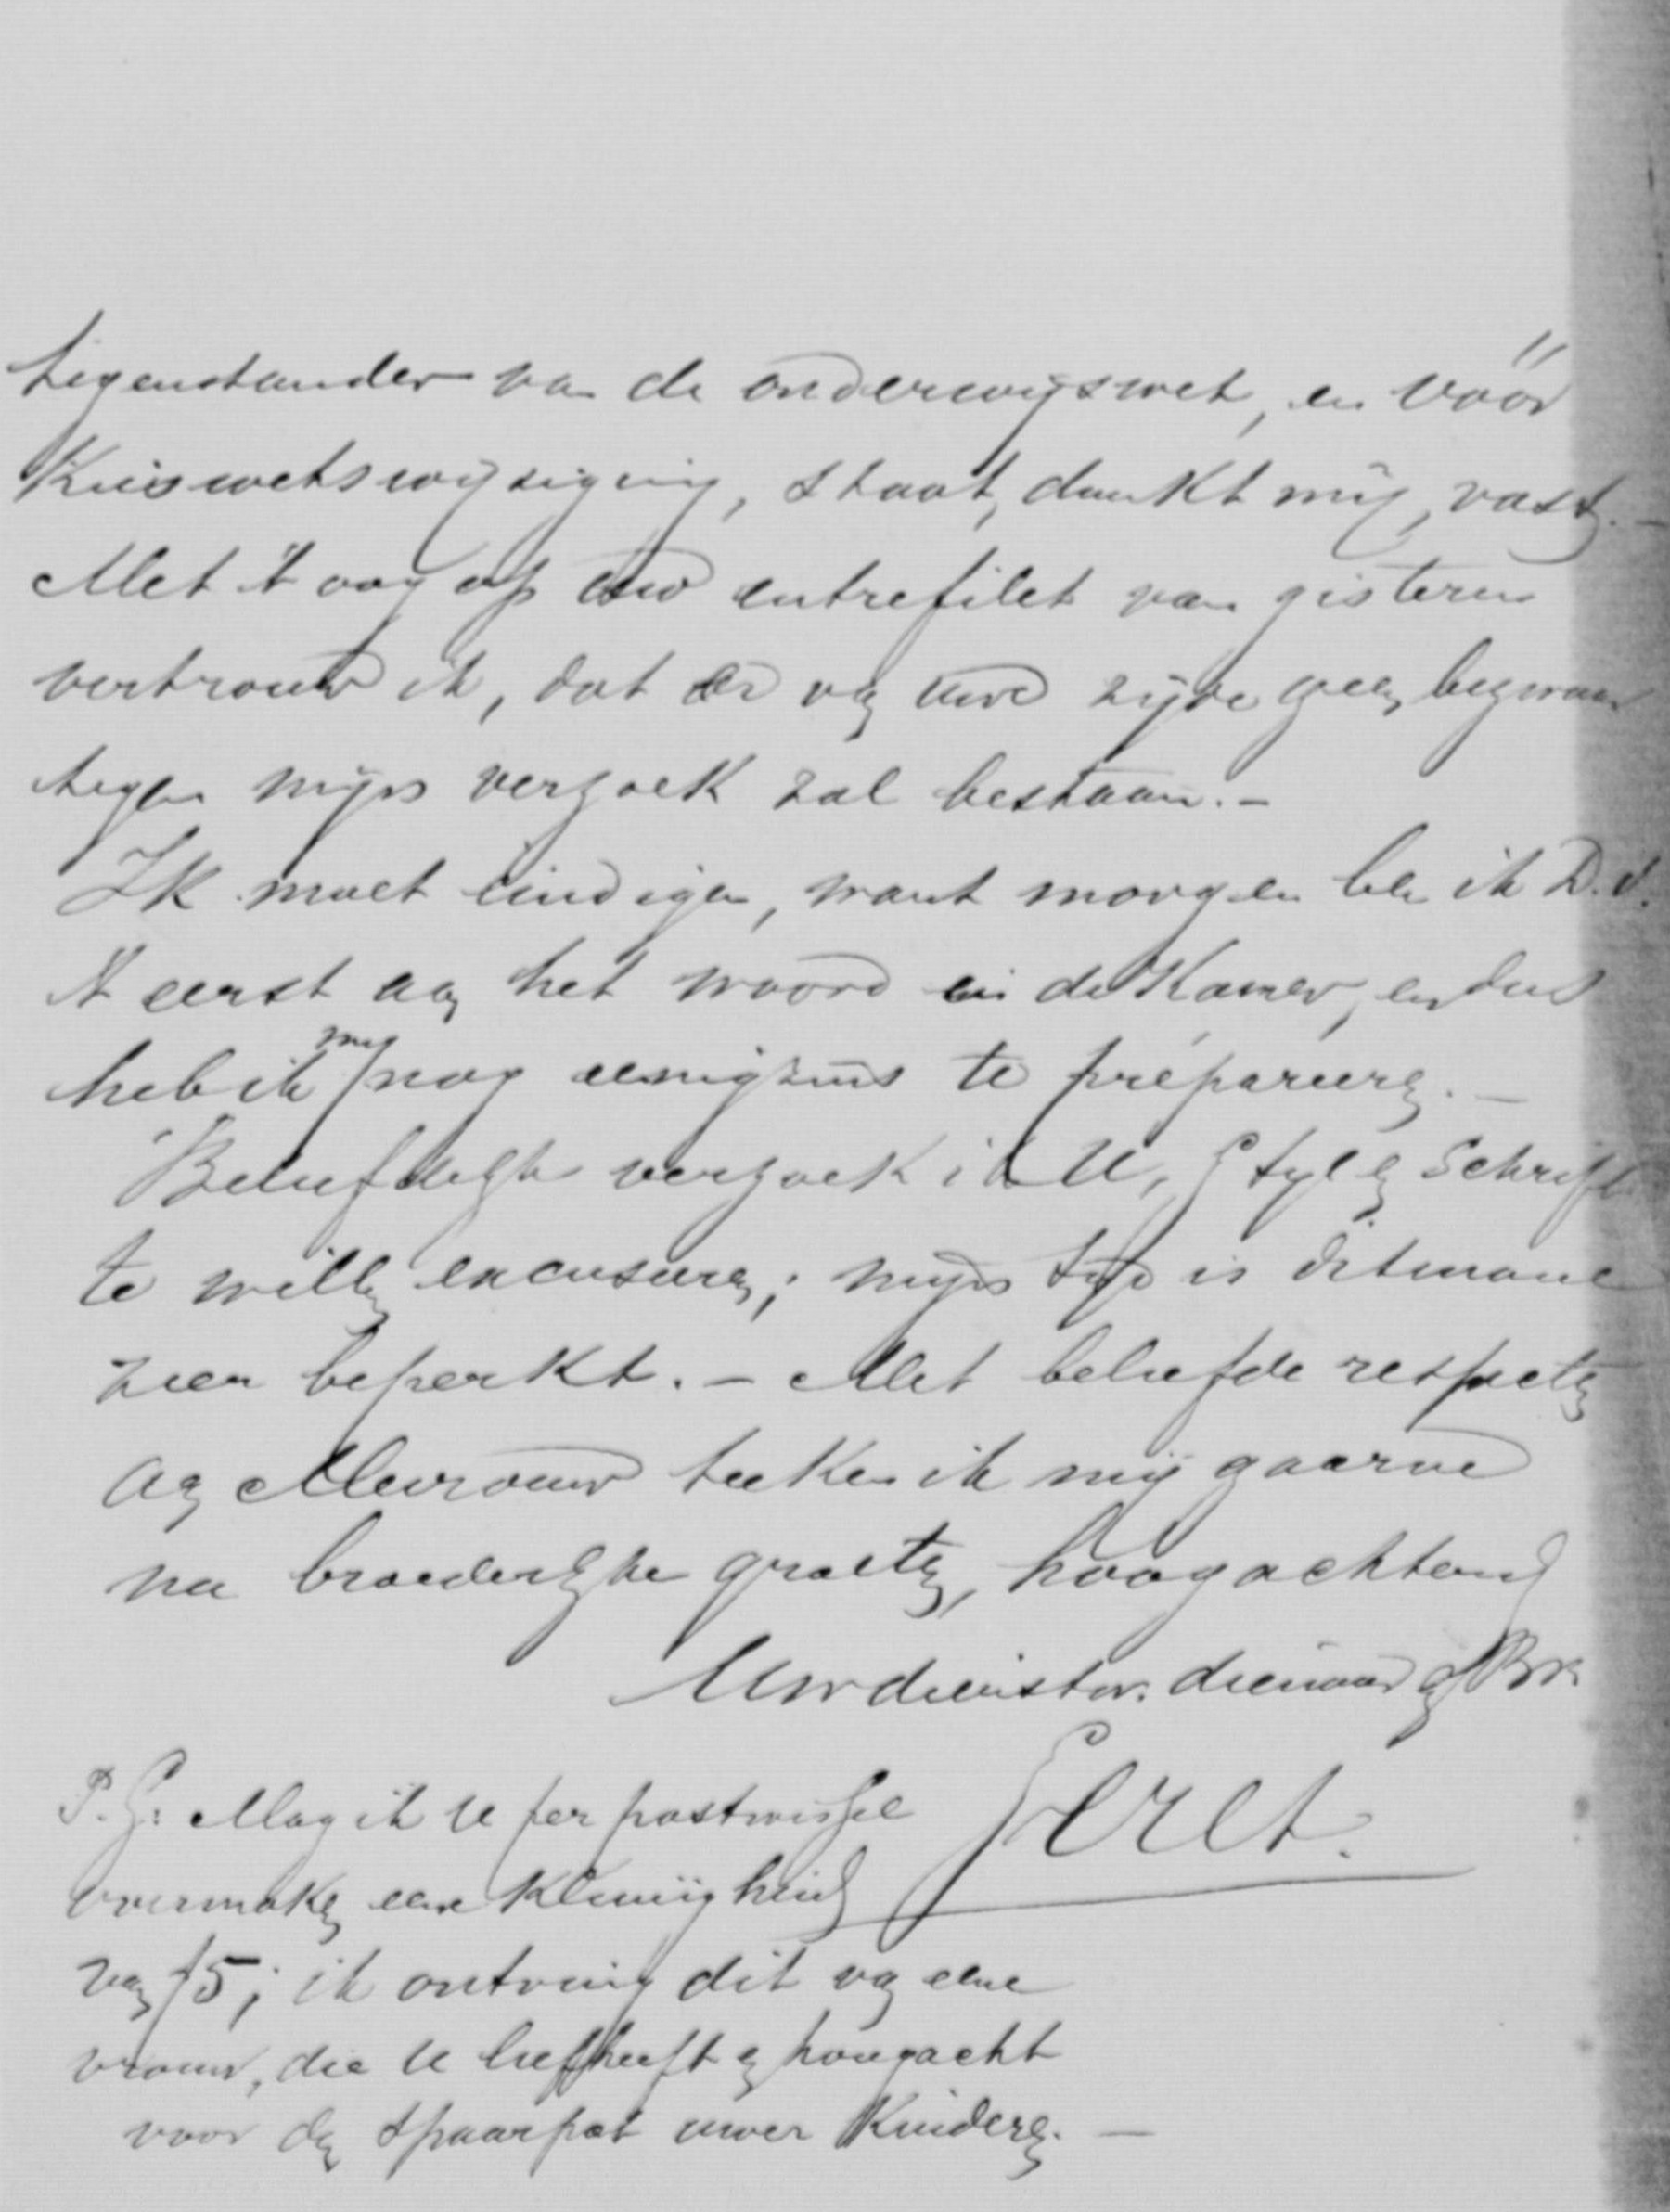 tegenstander van de onderwijswet, en vóór
Kieswetswijziging, staat, dunkt mij, vast. -
Met 't oog op uw entrefilet van gisteren
vertrouw ik, dat er van uwe zijde geen bezwaar
tegen mijn verzoek zal bestaan. -
Ik moet eindigen, want morgen ben ik D.V.
't eerst aan het woord in de Kamer, en dus
heb ik mij nog eenigzins te prépareeren. -
Beleefdelijk verzoek ik U, Styl en Schrift
te willen excuseeren; mijn tijd is ditmaal
zeer beperkt. - Met beleefde respecten
aan Mevrouw teeken ik mij gaarne
na broederlijke groeten, hoogachtend
Uw dienstw. dienaar en Br.
Seret.
P.S. Mag ik U per postwissel
overmaken eene kleinigheid
van f 5; ik ontving dit van eene
vrouw, die U liefheeft en hoogacht
voor den spaarpot uwer Kinderen. -